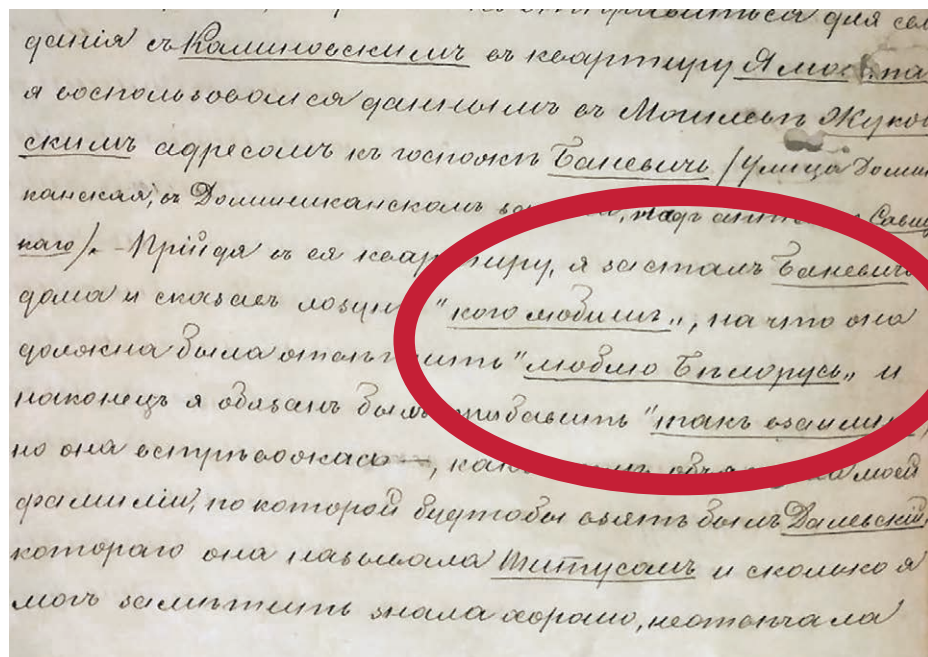 дания съ Калиновскимъ въ квартиру Ямонта
я воспользовался даннымъ въ Могилевѣ Жуков
скимъ адресомъ къ госпожѣ Баневичъ /улица Домини
канская, въ Доминиканскомъ надъ Савиц
каго/. – Прійдя въ ея квартиру, я засталъ Баневичъ
дома и сказавъ лозунгъ "кого любишь", на что она
должна была отвѣтить "люблю Бѣлорусь" и
наконецъ я обязанъ былъ прибавить "такъ взаимно"
но она встрѣвожась, моей
фамиліи, по которой будтобы взятъ былъ Далевскій,
котораго она называла Титусомъ и сколько я
могъ замѣтить знала хорошо, неотвѣчала